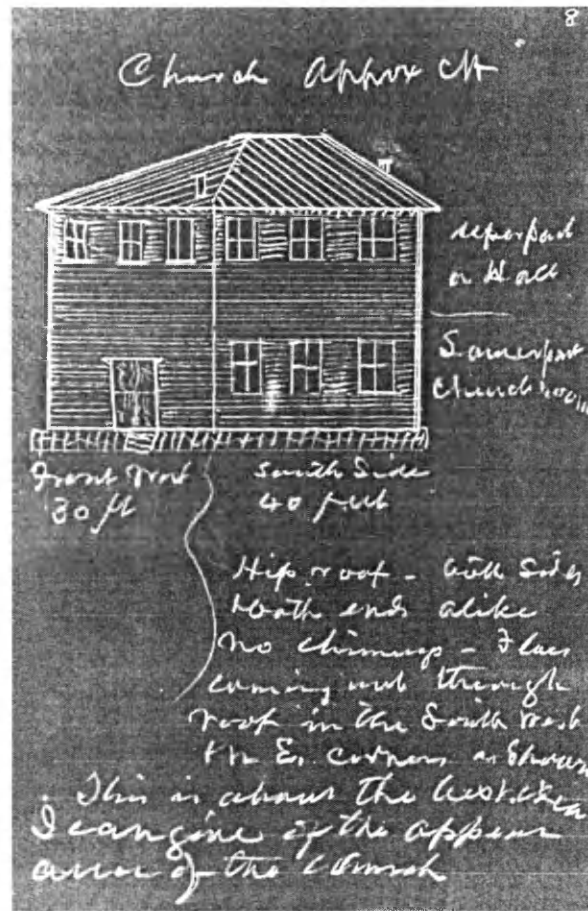 8
Church Approx
upper part
or Hall
Lower part
Church room
Front West
30 ft
South Side
40 feet
Hip roof - both Sides
& both ends alike
No chimneys - Flues
coming out through
roof in the South West
& N E. corners as Shown
This is about the best idea
I can give of the appear
ance of the Church